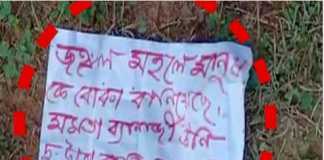 জঙ্গল মহলে মানুষ
কে বোকা বানিয়েছে,
মমতা ব্যানার্জী উনি